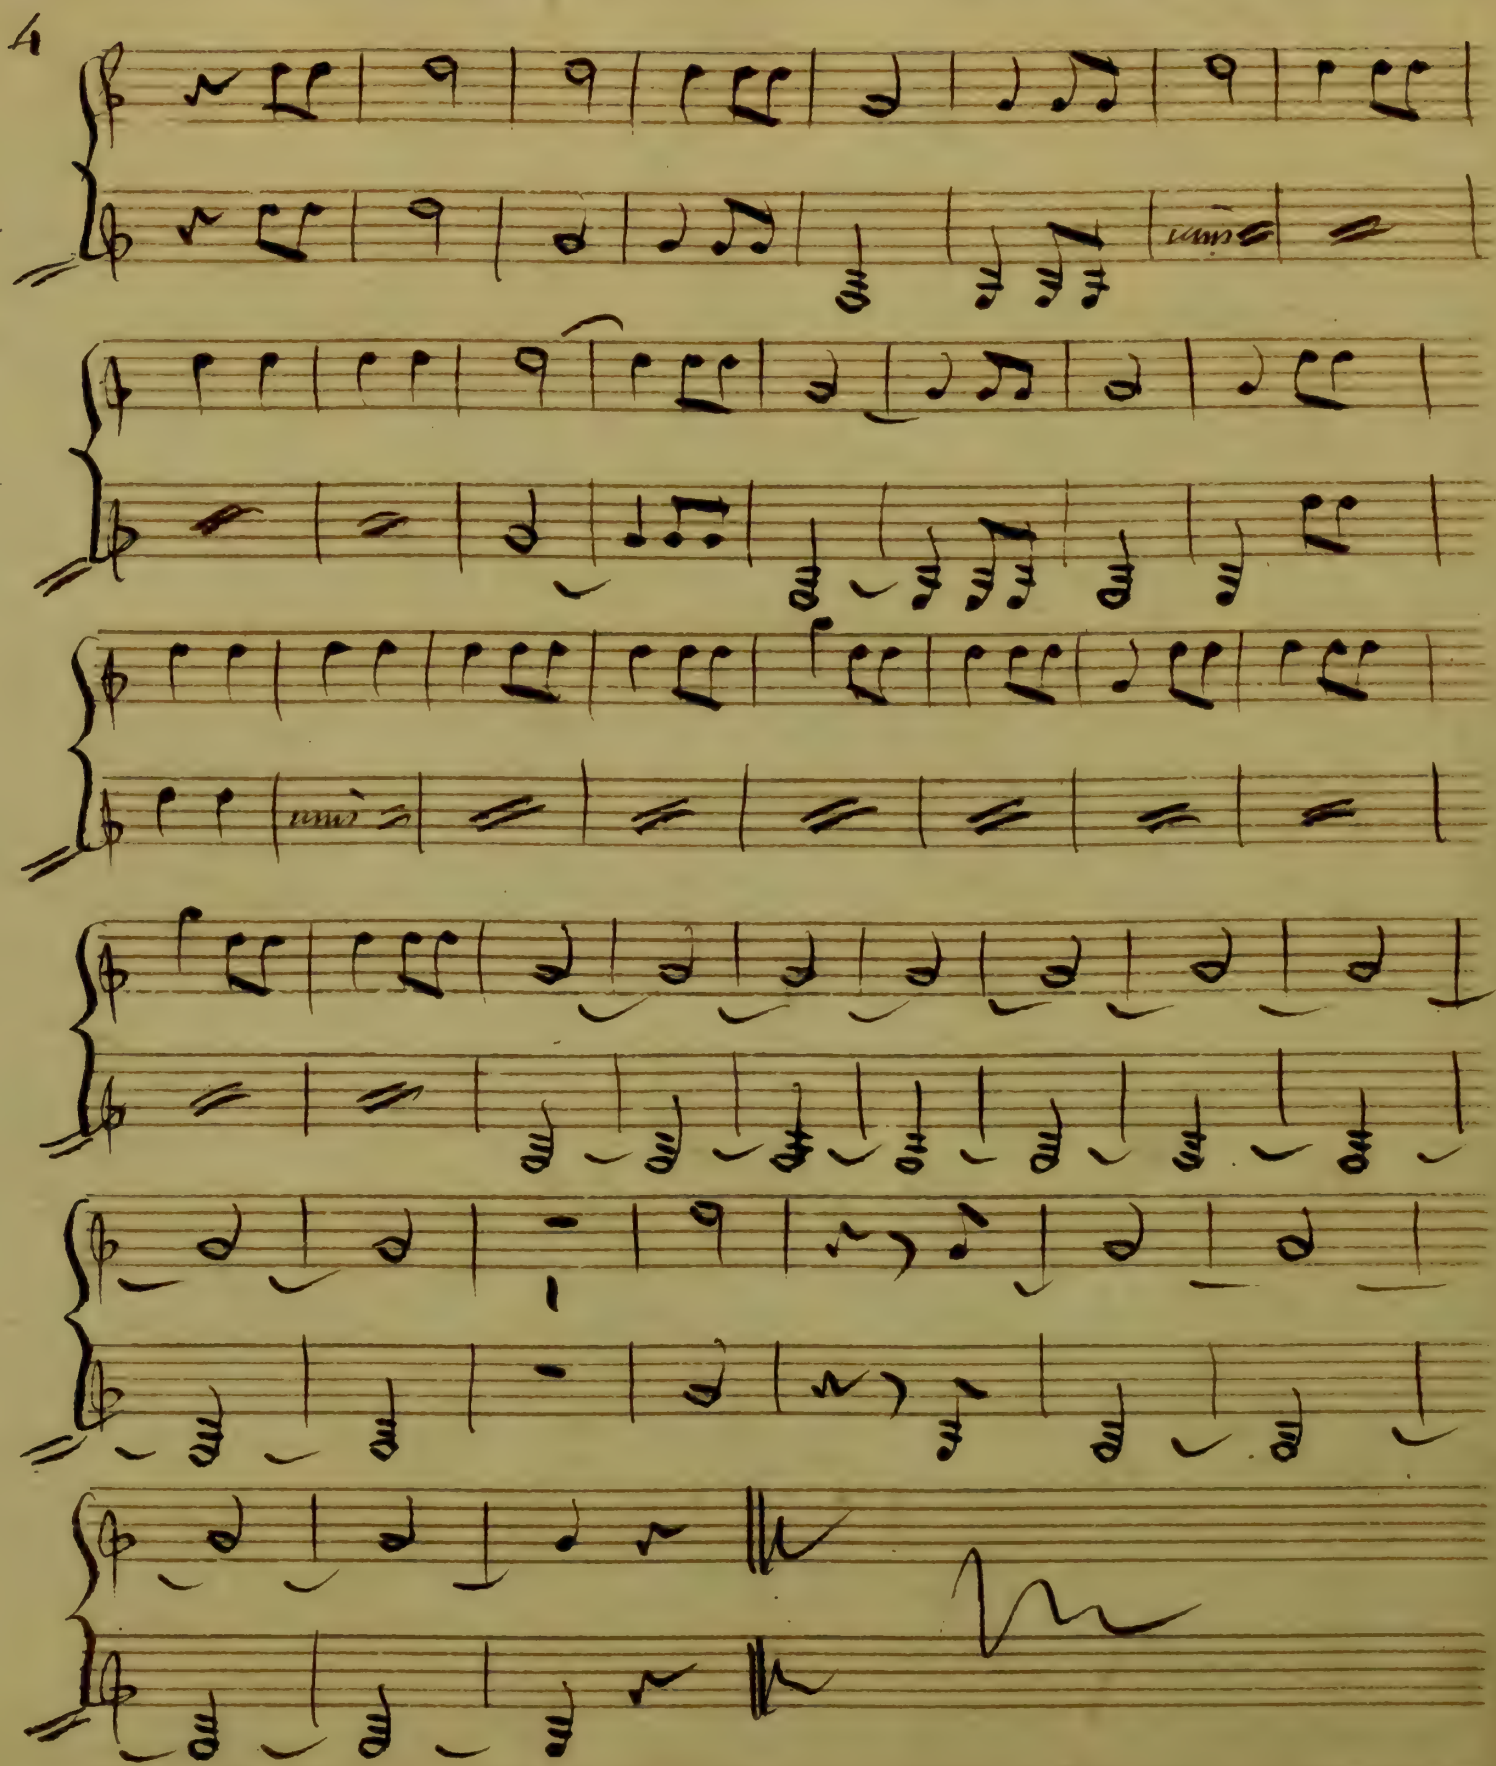 4
unis
unis